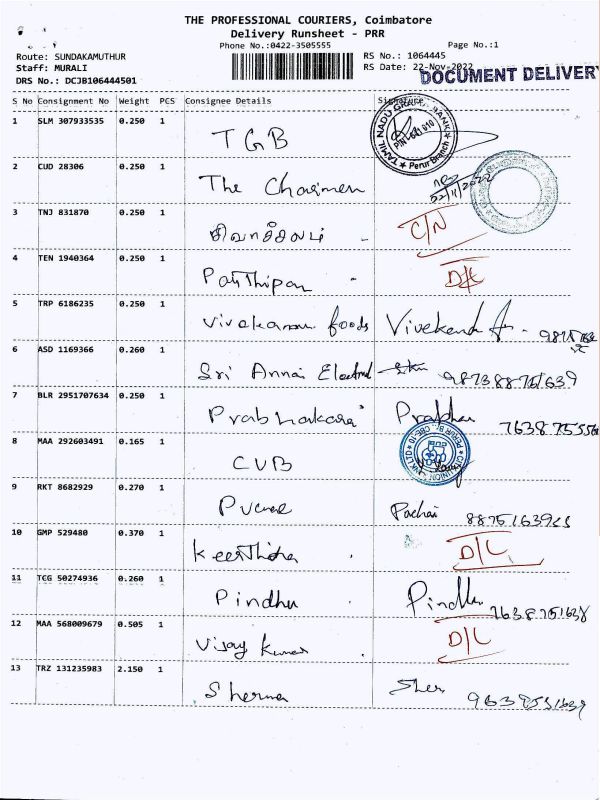 THE PROFESSIONAL COURIERS, Coimbatore
Delivery Runsheet - PRR
Phone No.:0422-3505555
Page No.:1
Route: SUNDAKAMUTHUR
RS No.: 1064445
Staff: MURALI
RS Date: 22-Nov-2022
DRS No.: DCJB106444501
DOCUMENT DELIVERY
S No Consignment No Weight PCS Consignee Details Signature
1 SLM 307933535 0.250 1 TGB
TAMIL NADU GRAMA BANK
PIN-641 010
★ Perur Branch ★
2 CUD 28306 0.250 1 The Chairmen
22/11/2022
3 TNJ 831870 0.250 1 C/N
4 TEN 1940364 0.250 1 Parthipan D/L
5 TRP 6186235 0.250 1 foods Vivekand
6 ASD 1169366 0.260 1 Sri Annai
7 BLR 2951707634 0.250 1 Prabhakara
8 MAA 292603491 0.165 1 CUB
9 RKT 8682929 0.270 1 Pachai
10 GMP 529480 0.370 1 Keerthika D/L
11 TCG 50274936 0.260 1 Pindhu
12 MAA 568009679 0.505 1 Vijay Kumar D/L
13 TRZ 131235983 2.150 1 Sherma Sher